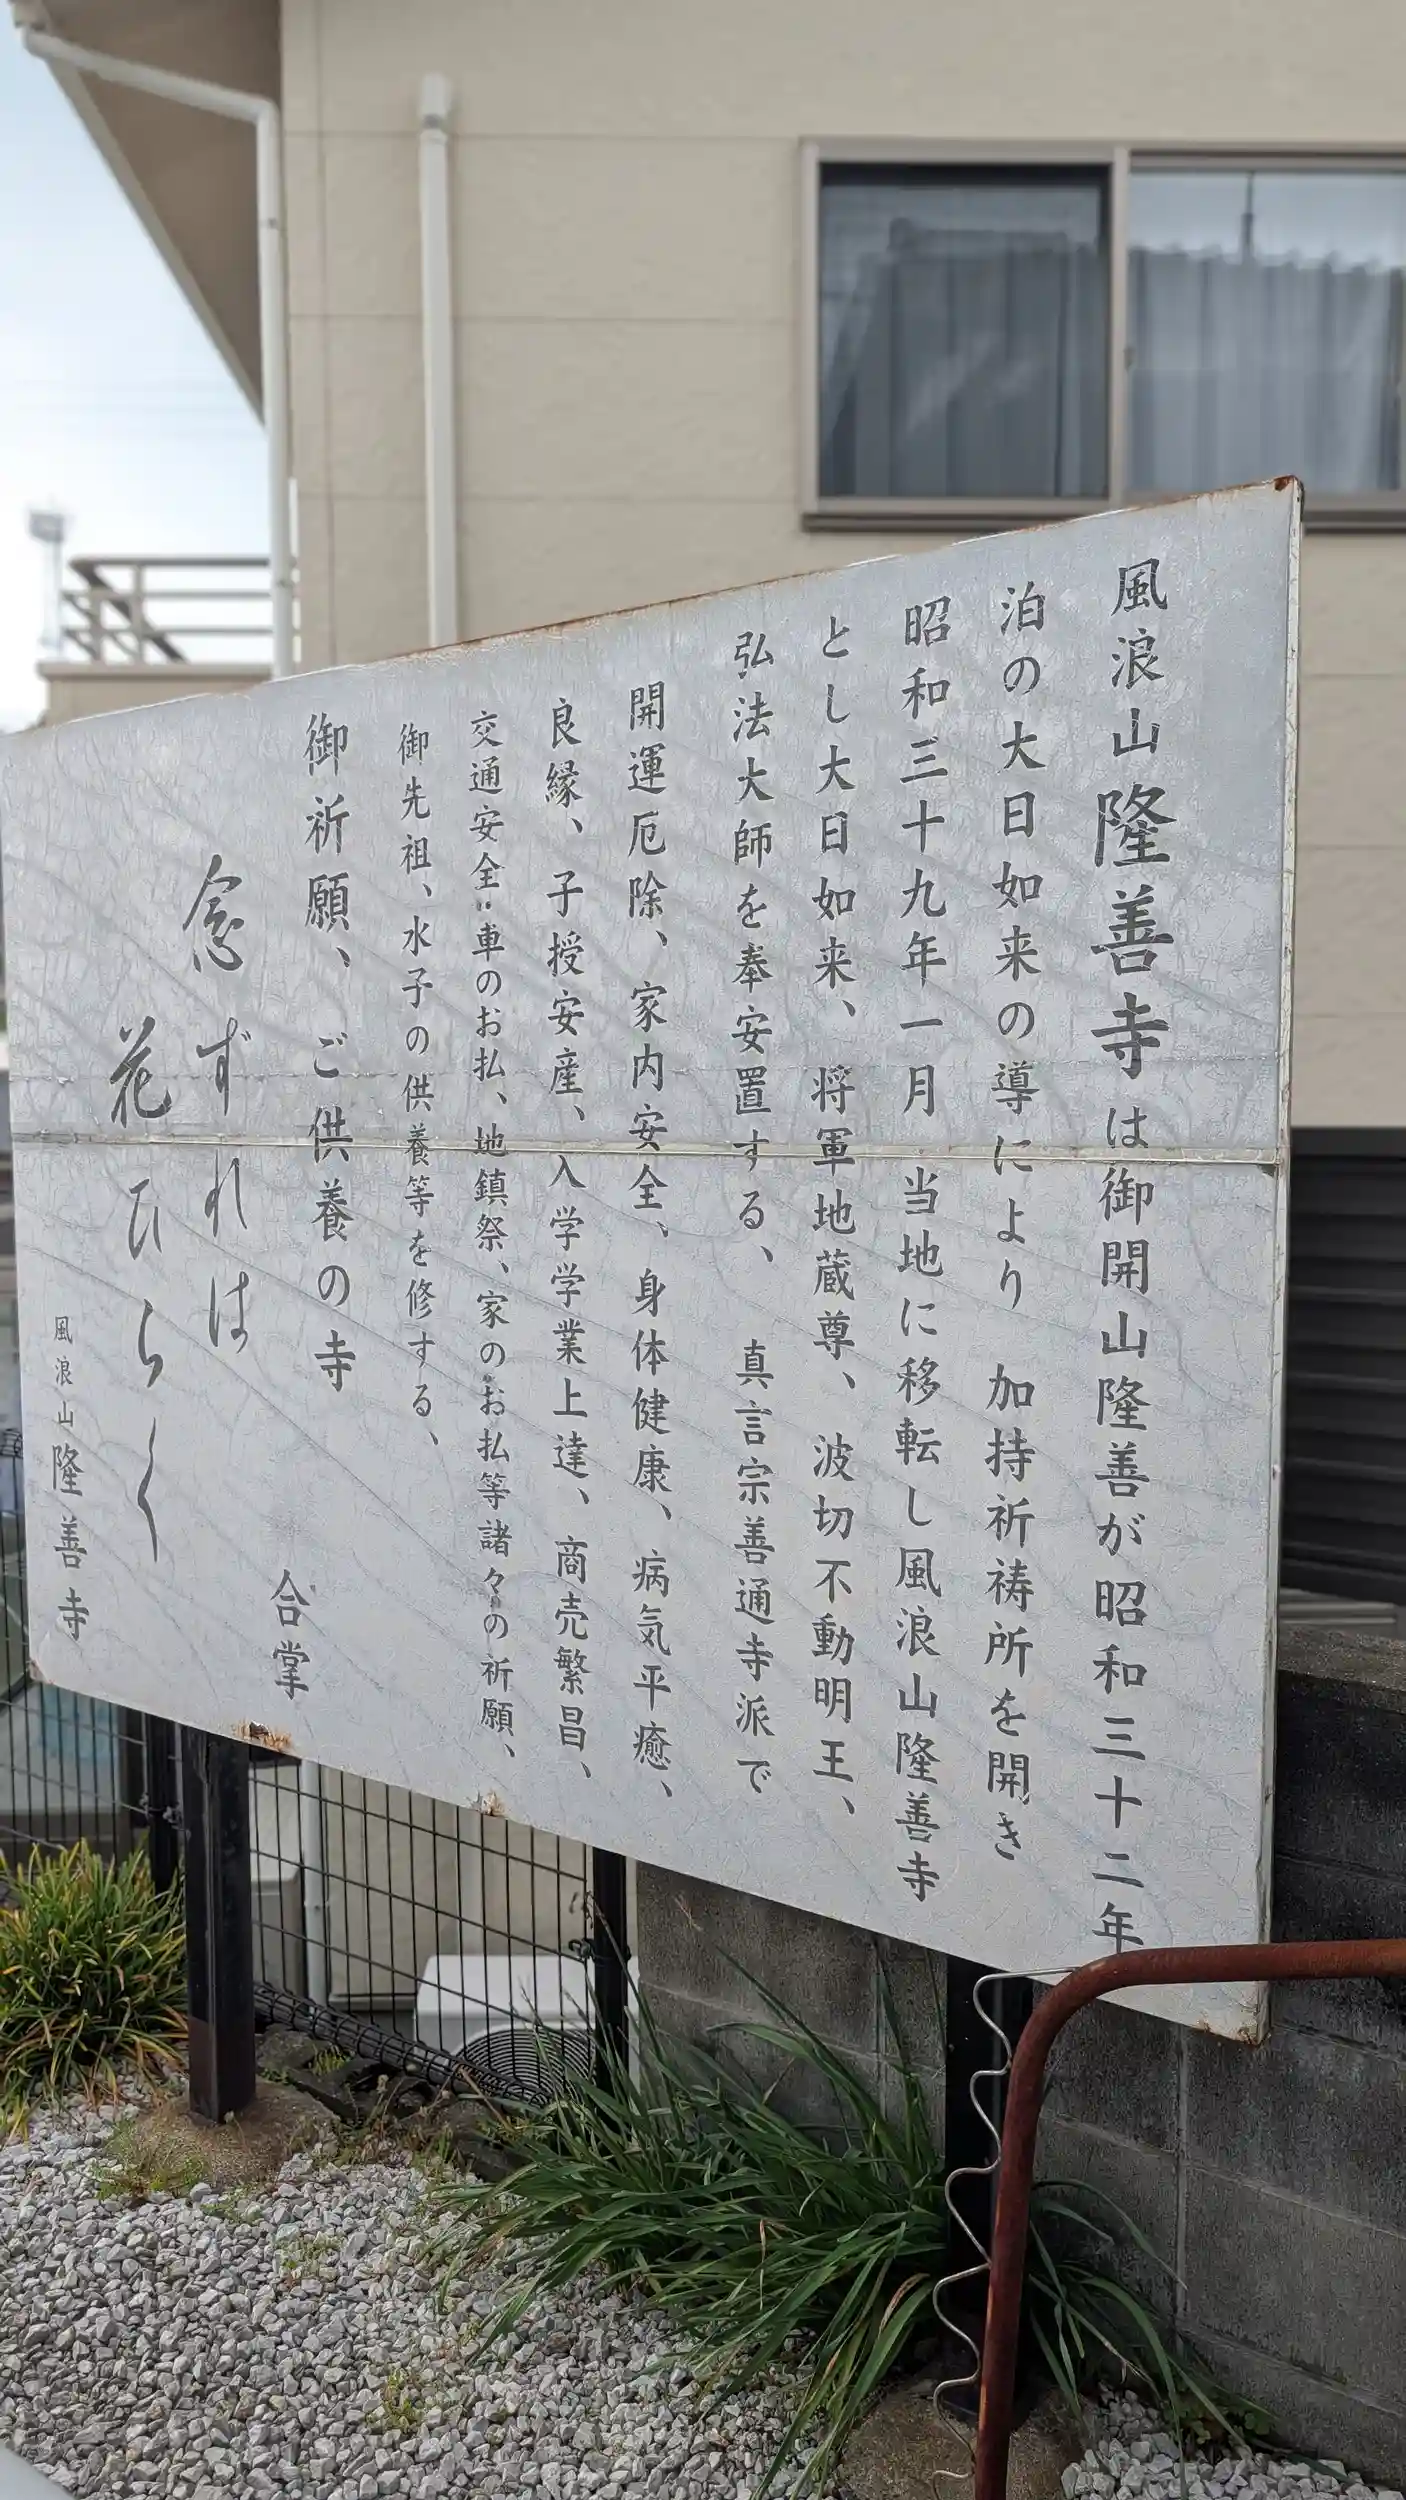 風浪山隆善寺は御開山隆善が昭和三十二年
泊の大日如来の導により 加持祈祷所を開き
昭和三十九年一月 当地に移転し風浪山隆善寺
とし大日如来、将軍地蔵尊、波切不動明王、
弘法大師を奉安置する、 真言宗善通寺派で
開運厄除、家内安全、身体健康、病気平癒、
良縁、子授安産、入学学業上達、商売繁昌、
交通安全〃車のお払、地鎮祭、家のお払等諸々の祈願、
御先祖、水子の供養等を修する、
御祈願、ご供養の寺
合掌
念ずれは
花ひらく
風浪山隆善寺